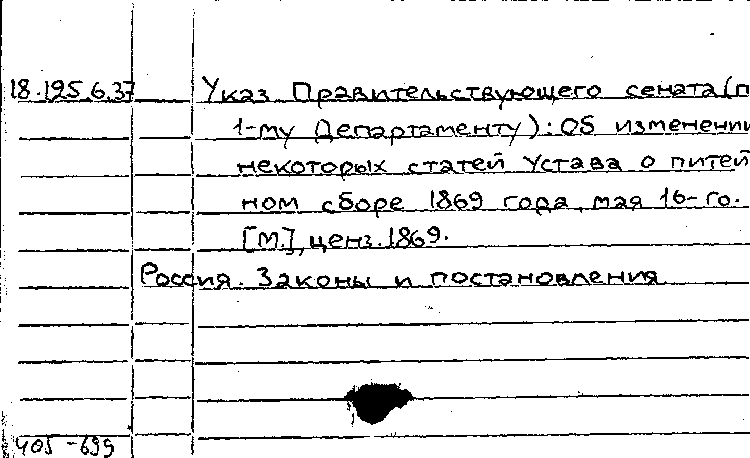 18.195.6.37 Указ Правительствующего сената (п
1-му Департаменту): Об изменении
некоторых статей Устава о питей
ном сборе 1869 года, мая 16-го.
[М.], ценз. 1869.
Россия. Законы и постановления
405-699